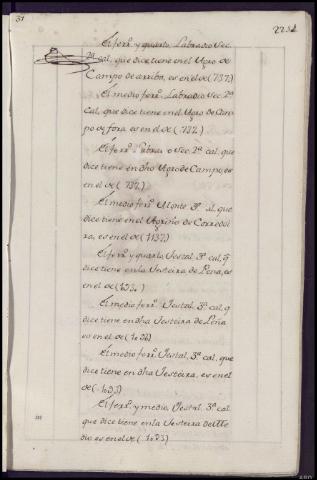 31
223
El ferr.º y quarto, Labradio Sec.
2ª cal, que dice tiene en el Agro de
Campo de arriba, es en el de (737)
El medio ferr.º Labradio Sec. 2ª
Cal, que dice tiene en el Agro de Cam
po de fora, es en el de (737)
El ferr.º Labradio Sec. 2ª cal. que
dice tiene en dho Agro de Campo, es
en el de (737)
El medio ferr.º Monte 3ª cal, que
dice tiene en el Agriño de Corredoi
ra, es en el de (1137)
El ferr.º y quarto Jestal, 3ª cal, q
dice tiene en la Jesteira de Pena, es
en el de
El medio ferr.º Jestal, 3ª cal, q
dice tiene en dha Jesteira de Pena
es en el de
El medio ferr.º Jestal, 3ª cal, que
dice tiene en dha Jesteira, es en el
de
El ferr.º y medio, Jestal, 3ª cal.
que dice tiene en la Jesteira de Me
dio es en el de